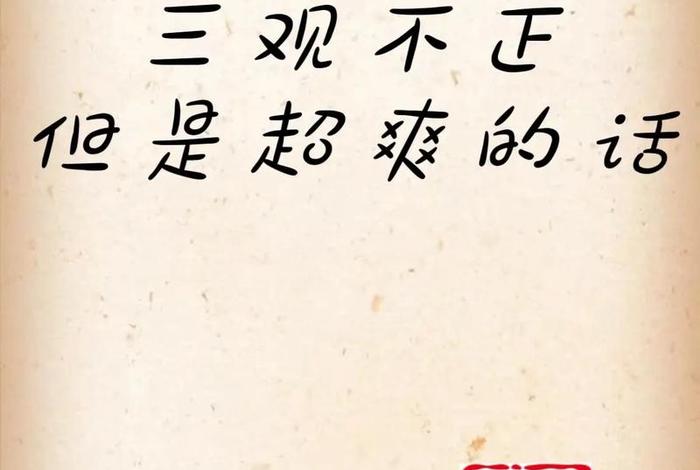 三观不正
但是超爽的话